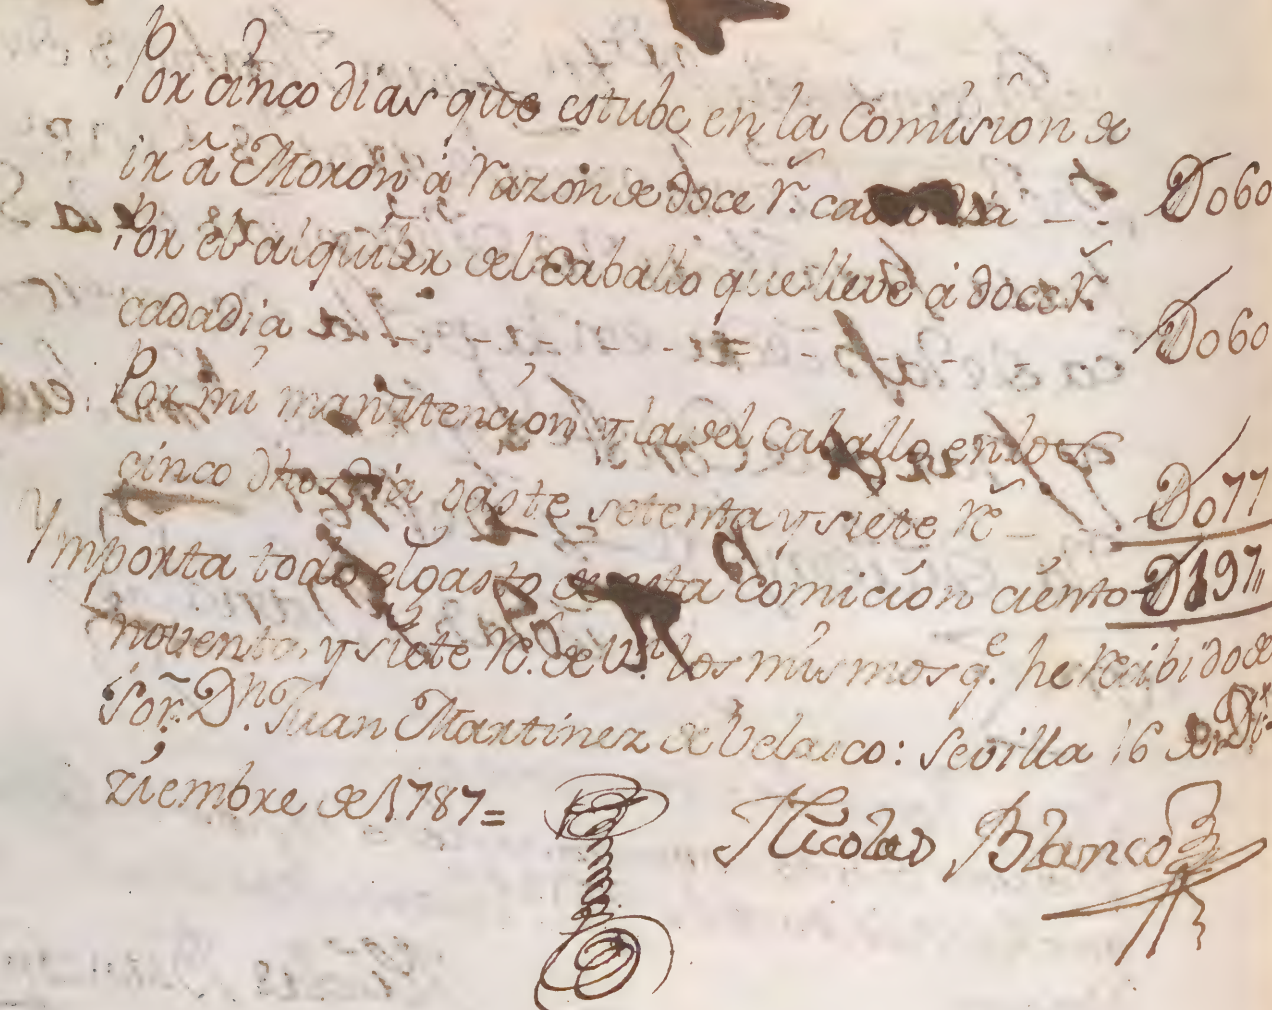 Por cinco dias que estube en la Comision de
ir â Moron â razon de doce r.ˢ cada dia — D060
Por el alquiler del Caballo que lleve â doce rˢ
cada dia - - - - - - D060
Por mi manutencion y la del Caballo en los
cinco dhos dia gaste setenta y siete rˢ — D077
Ymporta todo el gasto de esta comicion ciento D197
noventa, y siete rˢ. de v.ⁿ los mismos q.ᵉ he recibido de
Sor. D.ⁿ Juan Martinez de Velasco: Sevilla 16 de Di-
ziembre de 1787=
Nicolas Blanco